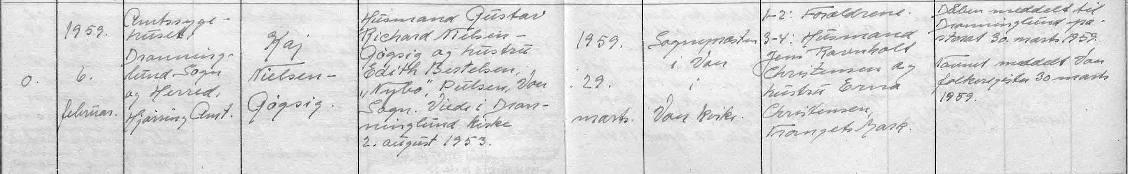 0.
1959.
6.
februar.
Amtssyge-
huset,
Dronning-
lund Sogn
og Herred,
Hjørring Amt.
Kaj
Nielsen-
Gögsig.
Husmand Gustav
Richard Nielsen-
Gögsig og hustru
Edith Bertelsen,
„Nybo", Pulsen, Voer
Sogn. Viede i Dron-
ninglund Kirke
2. august 1953.
1959.
29.
marts.
Sognepræsten
i Voer
i
Voer Kirke.
1-2: Forældrene.
3-4: Husmand
Jens Ravnholt
Christensen og
hustru Erna
Christensen,
Trangets Mark.
Dåben meddelt til
Dronninglund pa-
storat 30. marts 1959.
Navnet meddelt Voer
folkeregister 30 marts
1959.